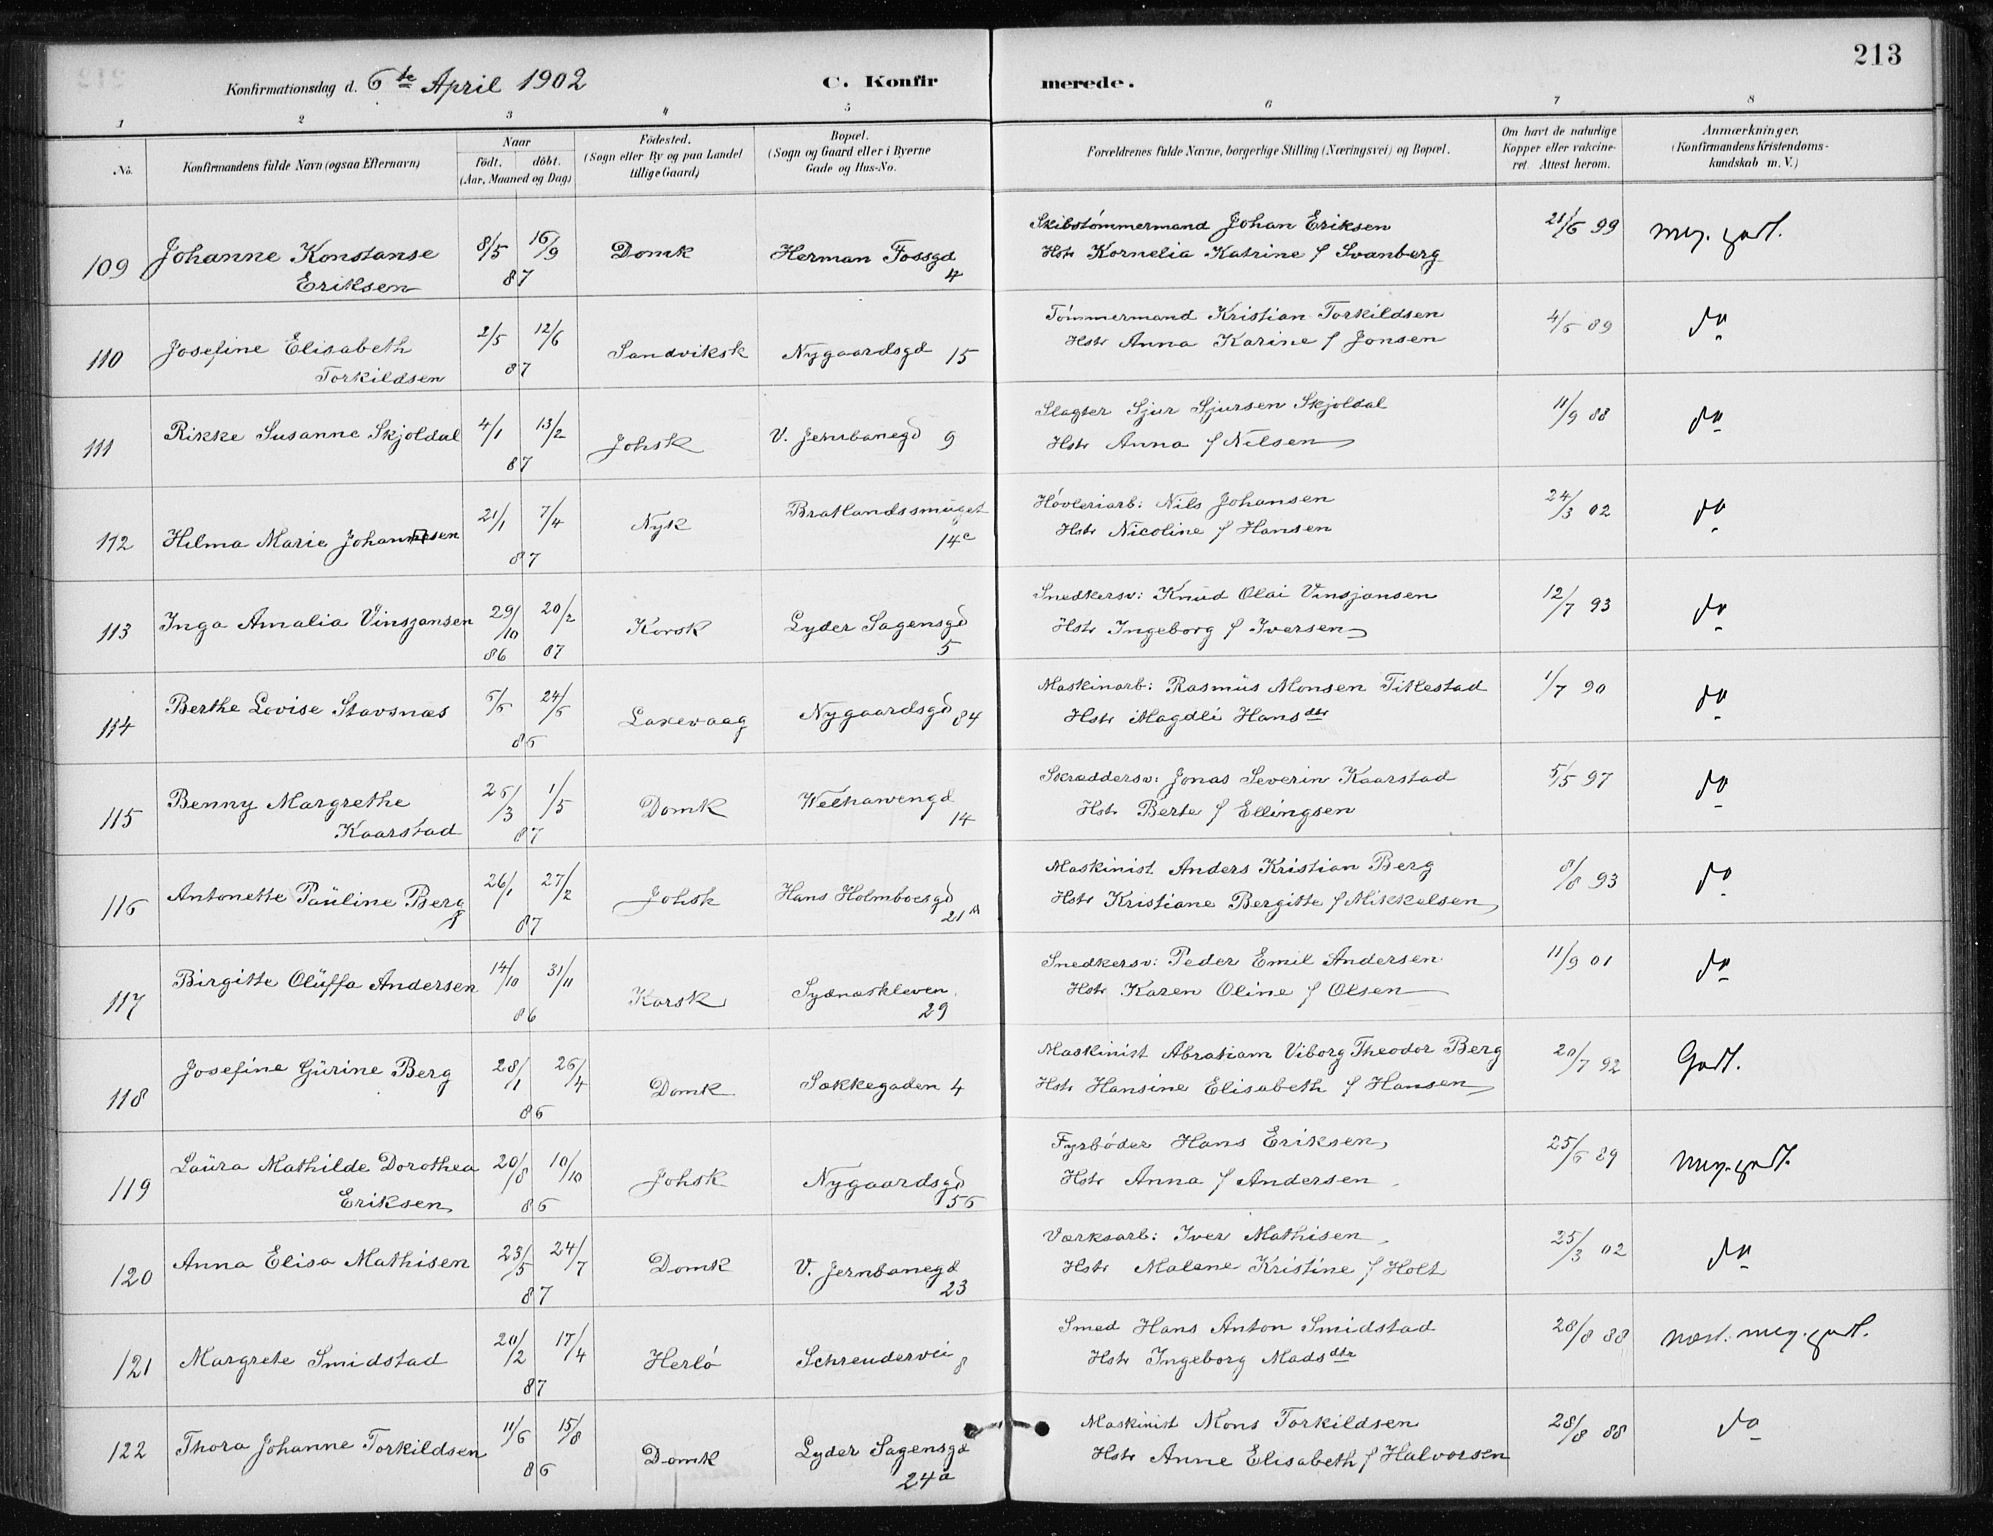 213
Konfirmationsdag d. 6te April 1902
C. Konfirmerede.
1 2 3 4 5 6 7 8
No.
Konfirmandens fulde Navn (ogsaa Efternavn)
Naar
födt, döbt.
(Aar, Maaned og Dag)
Födested.
(Sogn eller By og paa Landet
tillige Gaard)
Bopæl.
(Sogn og Gaard eller i Byerne
Gade og Hus-No.
Forældrenes fulde Navne, borgerlige Stilling (Næringsvei) og Bopæl.
Om havt de naturlige
Kopper eller vakcine-
ret. Attest herom.
Anmærkninger,
(Konfirmandens Kristendoms-
kundskab m. V.)
109 Johanne Konstanse 8/5 16/9 Domk Herman Fossgd
Eriksen 87 4
Skibstømmermand Johan Eriksen 21/6 99 meg. godt.
Hstr Kornelia Katrine f Svanberg
110 Josefine Elisabeth 2/5 12/6 Sandviksk Nygaardsgd 15
Torkildsen 87
Tømmermand Kristian Torkildsen 4/6 89 do
Hstr Anna Karine f Jonsen
111 Rikke Susanne Skjoldal 4/1 13/2 Johsk V. Jernbanegd 9
87
Slagter Sjur Sjursen Skjoldal 11/9 88 do
Hstr Anna f Nilsen
112 Hilma Marie Johansen 21/1 7/4 Nyk Bratlandssmuget
87 14c
Høvleriarb: Nils Johansen 24/3 02 do
Hstr Nicoline f Hansen
113 Inga Amalia Vinsjansen 29/10 20/2 Korsk Lyder Sagensgd
86 87 5
Snedkersv: Knud Olai Vinsjansen 12/7 93 do
Hstr Ingeborg f Iversen
114 Berthe Lovise Stavsnæs 5/5 24/5 Laxevaag Nygaardsgd 84
86
Maskinarb: Rasmus Monsen Titlestad 1/7 90 do
Hstr Magdli Hansdtr
115 Benny Margrethe 26/3 1/5 Domk Welhavengd
Kaarstad 87 14
Skræddersv: Jonas Severin Kaarstad 5/5 97 do
Hstr Berte f Ellingsen
116 Antonette Pauline Berg 26/1 27/2 Johsk Hans Holmboesgd
87 21A
Maskinist Anders Kristian Berg 8/8 93 do
Hstr Kristiane Bergitte f Mikkelsen
117 Birgitte Oluffa Andersen 14/10 31/11 Korsk Sydnæskleven
86 29
Snedkersv: Peder Emil Andersen 11/9 01 do
Hstr Karen Oline f Olsen
118 Josefine Gurine Berg 28/1 26/4 Domk Sækkegaden 4
86
Maskinist Abraham Viborg Theodor Berg 20/7 92 Godt.
Hstr Hansine Elisabeth f Hansen
119 Laura Mathilde Dorothea 20/8 10/10 Johsk Nygaardsgd
Eriksen 86 56
Fyrbøder Hans Eriksen 25/6 89 meg. godt.
Hstr Anna f Andersen
120 Anna Elisa Mathisen 23/5 24/7 Domk V. Jernbanegd
87 23
Værksarb: Iver Mathisen 25/3 02 do
Hstr Malene Kristine f Holt
121 Margrete Smidstad 20/2 17/4 Herlø Schreudervei 8
87
Smed Hans Anton Smidstad 28/8 88 næst. meg. godt.
Hstr Ingeborg Madsdtr
122 Thora Johanne Torkildsen 11/6 15/8 Domk Lyder Sagensgd
86 24a
Maskinist Mons Torkildsen 28/8 88 do
Hstr Anne Elisabeth f Halvorsen